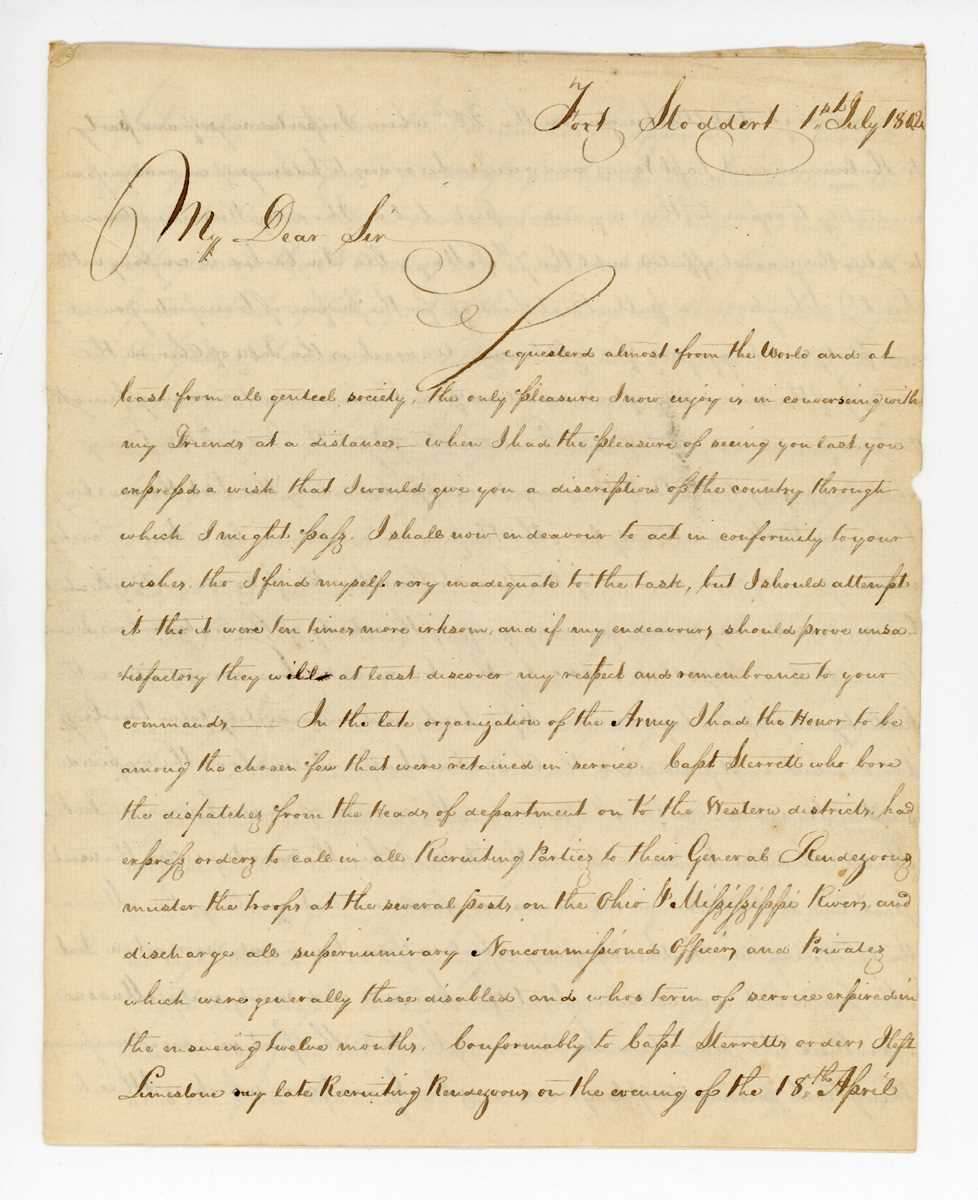 Fort Stoddert 1st July 1802
My Dear Sir
Sequesterd almost from the World and at
least from all genteel society, the only pleasure I now enjoy is in conversing with
my Friends at a distance — when I had the pleasure of seeing you last, you
express'd a wish that I would give you a discription of the country through
which I might pass. I shall now endeavour to act in conformity to your
wishes, tho I find myself very inadequate to the task, but I should attempt
it tho it were ten times more irksom, and if my endeavours should prove unsa-
tisfactory they will at least discover my respect and remembrance to your
commands — In the late organization of the Army I had the Honor to be
among the chosen few that were retained in service. Capt Sterrett who bore
the dispatches from the Heads of department on to the Western districts, had
express orders to call in all Recruiting Parties to their General Rendezvous,
muster the troops at the several posts, on the Ohio & Mississippi Rivers, and
discharge all supernumirary Noncommissioned Officers and Privates
which were generally those disabled and whos term of service expired in
the ensueing twelve months. Conformably to Capt Sterretts orders I left
Limestone my late Recruiting Rendezvous on the evening of the 18th April